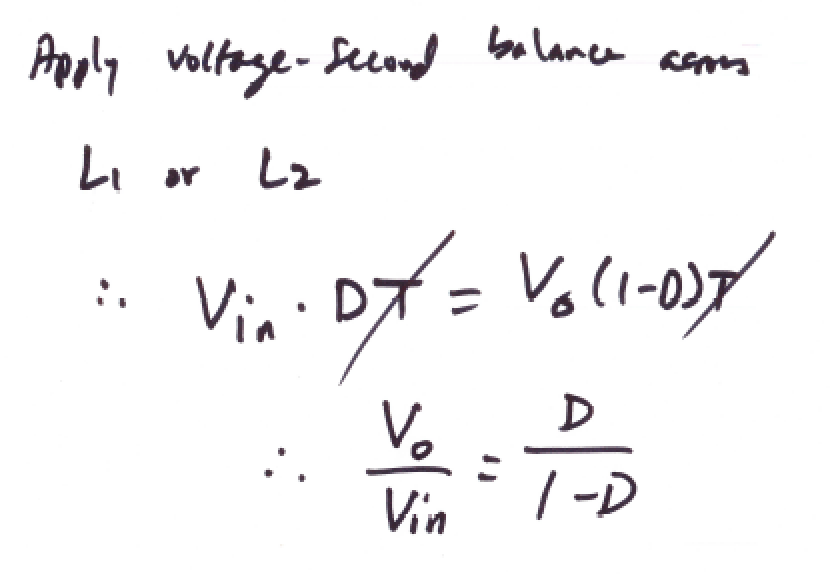 Apply voltage-second balance across
L1 or L2
∴ Vin · DT = Vo (1-D)T
∴ Vo/Vin = D/1-D